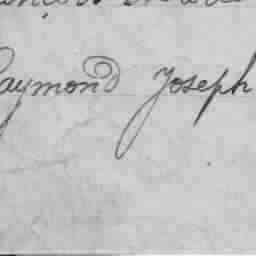 Raymond Joseph